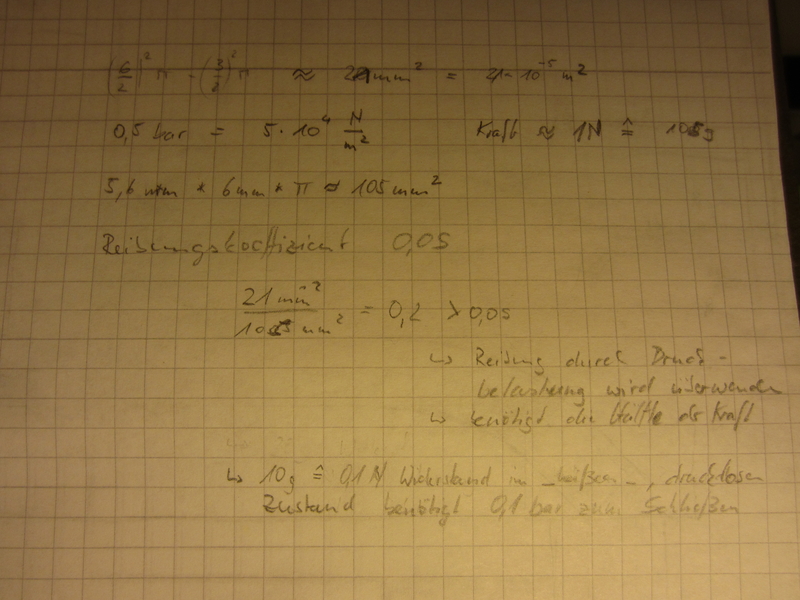 (6/2)² π - (3/2)² π ≈ 21 mm² = 21 · 10⁻⁵ m²
0,5 bar = 5 · 10⁴ N/m² Kraft ≈ 1N ≙ 105g
5,6 mm * 6mm * π ≈ 105 mm²
Reibungskoffizient 0,05
21 mm² / 105 mm² = 0,2 > 0,05
↳ Reibung durch Druck-
belastung wird überwunden
↳ benötigt die Hälfte der Kraft
↳ 10g ≙ 0,1 N Widerstand im _heißen_, drucklosen
Zustand benötigt 0,1 bar zum Schließen